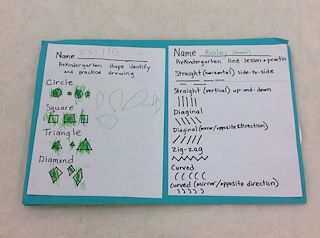 Name
PreKindergarten shape identify
and practice drawing
Circle
Square
Triangle
Diamond
Name Bailey
PreKindergarten line lesson + practice
Straight (horizontal) side-to-side
Straight (vertical) up-and-down
Diaginal
Diaginal (mirror/opposite direction)
Zig-zag
Curved
Curved (mirror/opposite direction)